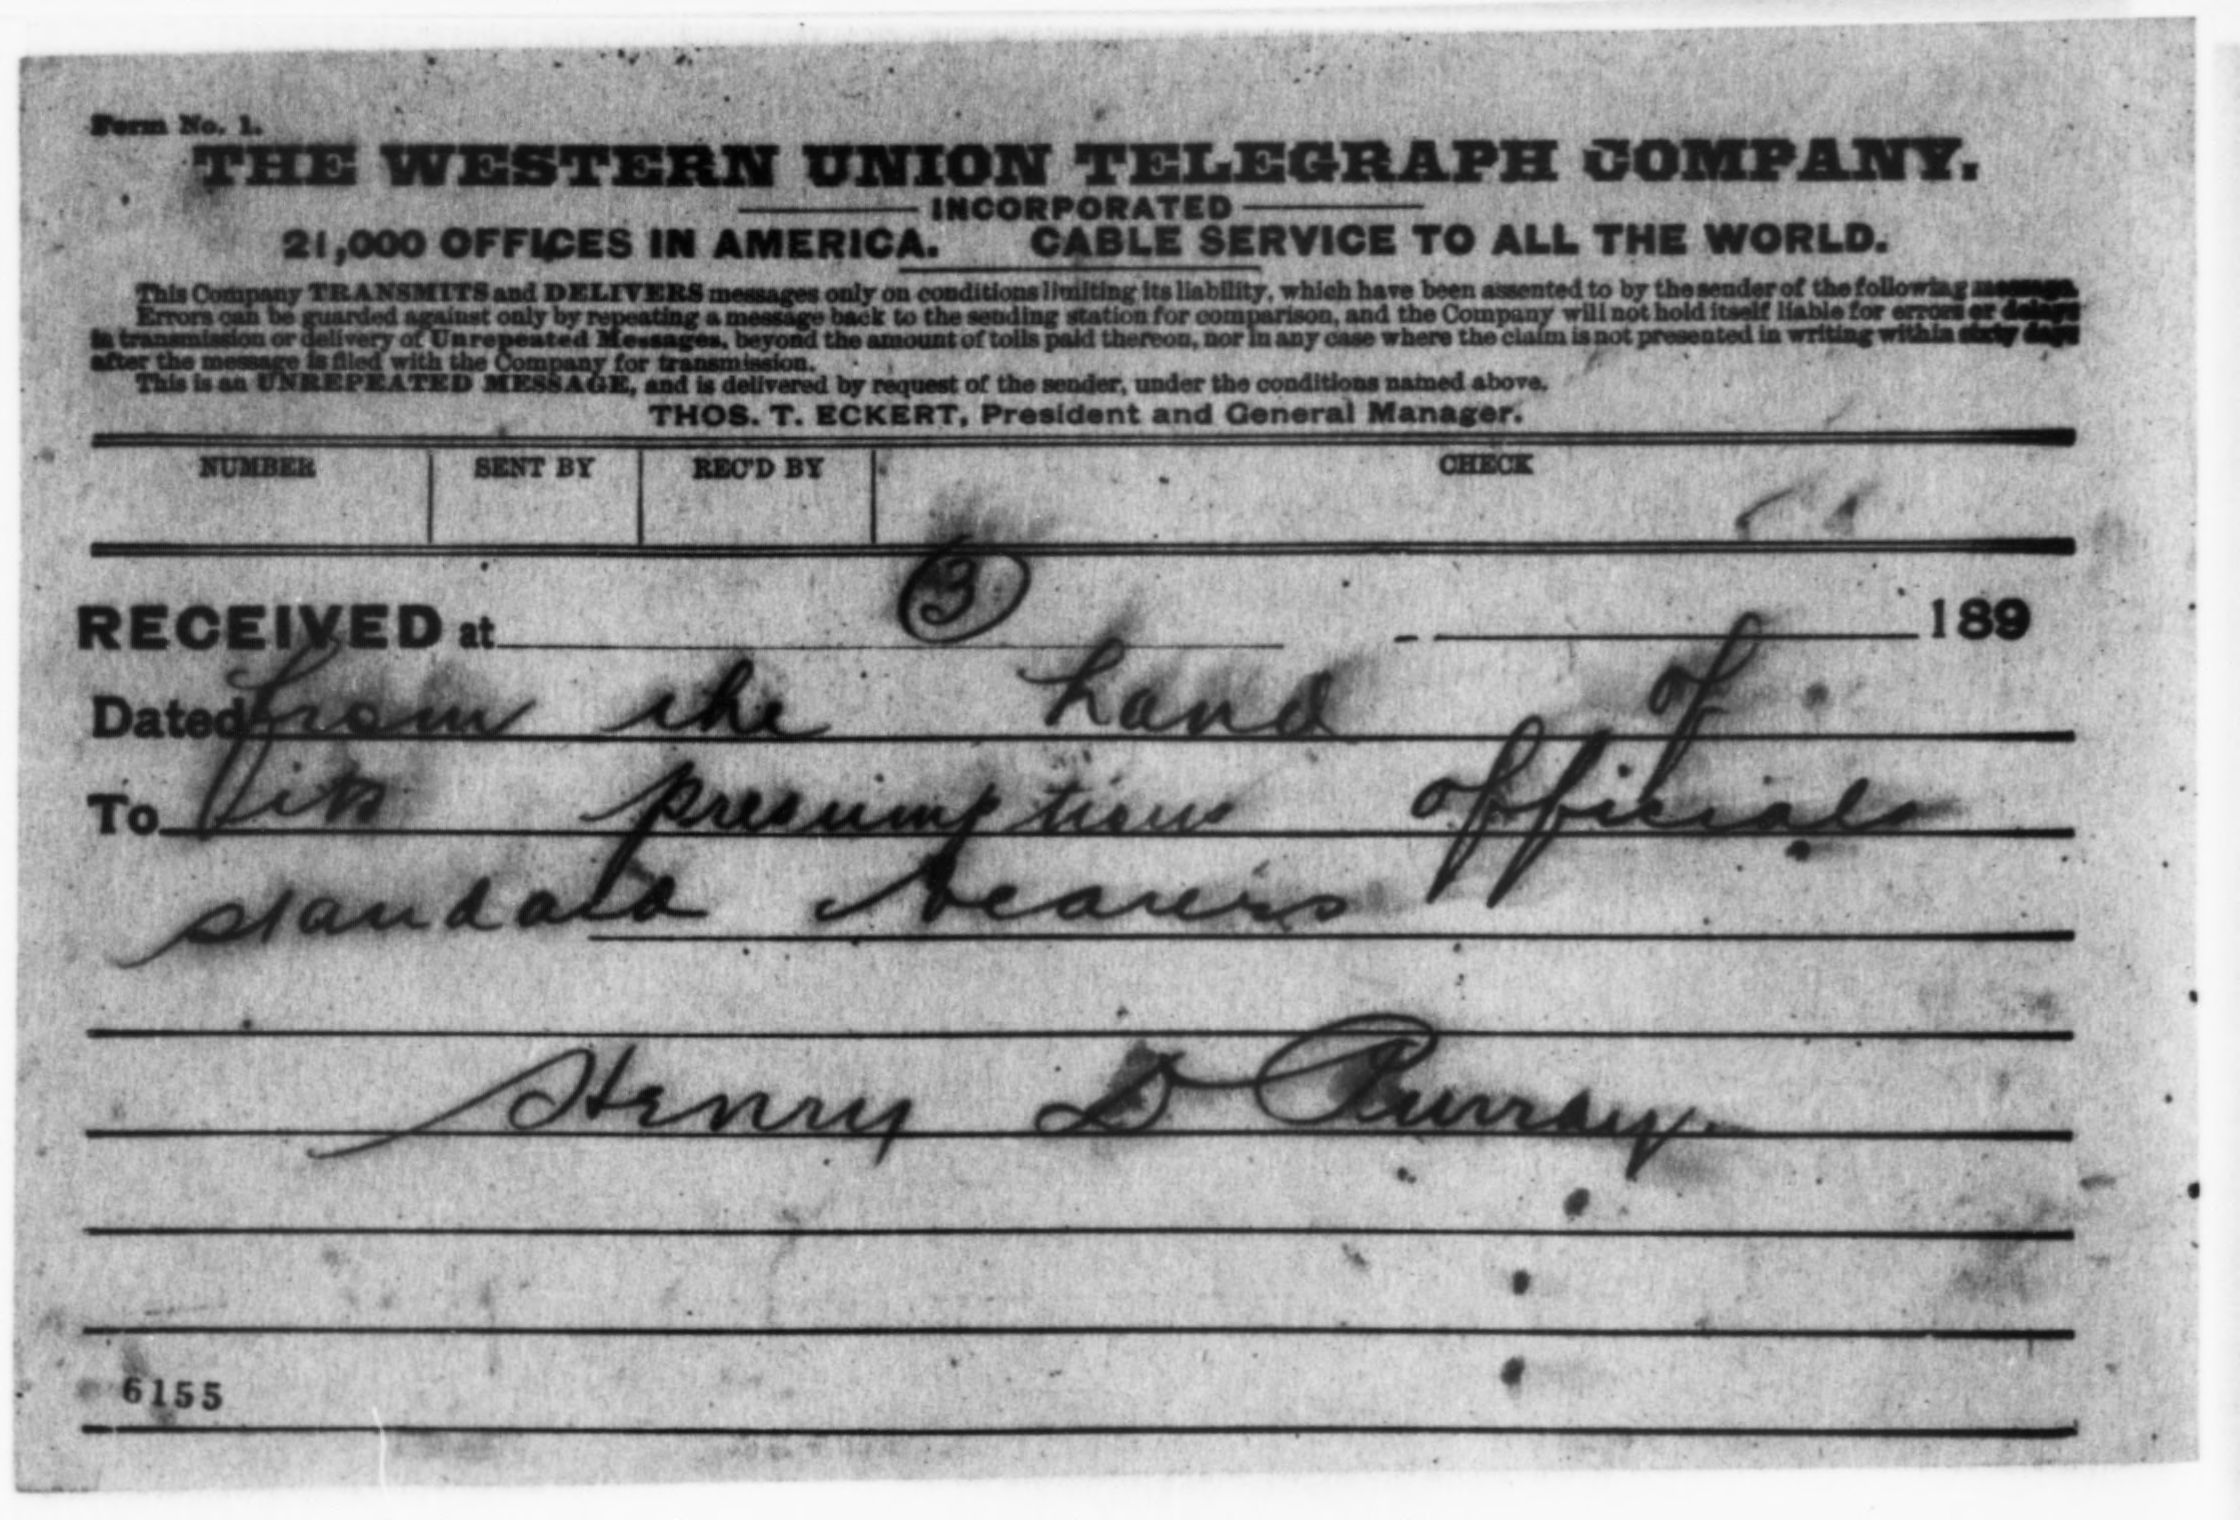 Form No. 1.
THE WESTERN UNION TELEGRAPH COMPANY.
INCORPORATED
21,000 OFFICES IN AMERICA. CABLE SERVICE TO ALL THE WORLD.
This Company TRANSMITS and DELIVERS messages only on conditions limiting its liability, which have been assented to by the sender of the following message.
Errors can be guarded against only by repeating a message back to the sending station for comparison, and the Company will not hold itself liable for errors or delays
in transmission or delivery of Unrepeated Messages, beyond the amount of tolls paid thereon, nor in any case where the claim is not presented in writing within sixty days
after the message is filed with the Company for transmission.
This is an UNREPEATED MESSAGE, and is delivered by request of the sender, under the conditions named above.
THOS. T. ECKERT, President and General Manager.
NUMBER SENT BY REC'D BY CHECK
3
RECEIVED at 189
Dated from the hand of
To its presumptious officials
standard bearers
Henry D Purray.
6155